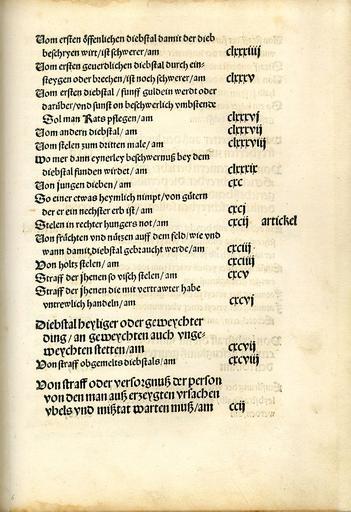 Vom ersten öffenlichen diebstal damit der dieb
beschryen wirt/ ist schwerer/ am clxxxiiij
Vom ersten geuerdlichen diebstal durch ein-
steygen oder brechen/ ist noch schwerer/ am clxxxv
Vom ersten diebstal/ funff guldein werdt oder
darüber/ vnd sunst on beschwerlich vmbstende
Sol man Rats pflegen/ am clxxxvj
Vom andern diebstal/ am clxxxvij
Vom stelen zum dritten male/ am clxxxviij
Wo mer dann eynerley beschwernuß bey dem
diebstal funden wirdet/ am clxxxix
Von jungen dieben/ am cxc
So einer etwas heymlich nimpt/ von gütern
der er ein nechster erb ist/ am cxcj
Stelen in rechter hungers not/ am cxcij artickel
Von früchten vnd nützen auff dem feld/ wie vnd
wann damit diebstal gebraucht werde/ am cxciij
Von holtz stelen/ am cxciiij
Straff der jhenen so visch stelen/ am cxcv
Straff der jhenen die mit vertrawter habe
vntrewlich handeln/ am cxcvj
Diebstal heyliger oder geweychter
ding/ an geweychten auch vnge-
weychten stetten/ am cxcvij
Von straff obgemelts diebstals/ am cxcviij
Von straff oder versorgnuß der person
von den man auß erzeygten vrsachen
vbels vnd mißtat warten muß/ am ccij